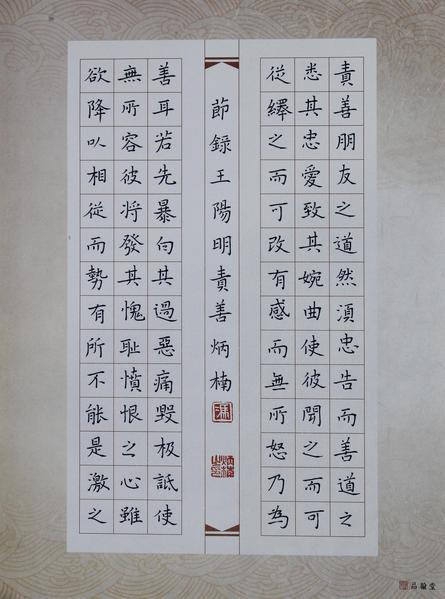 責善朋友之道然湏忠告而善道之
悉其忠愛致其婉曲使彼聞之而可
從繹之而可改有感而無所怒乃為
節錄王陽明責善炳楠
善耳若先暴白其過惡痛毀極詆使
無所容彼將發其愧恥憤恨之心雖
欲降以相從而勢有所不能是激之
品翰堂